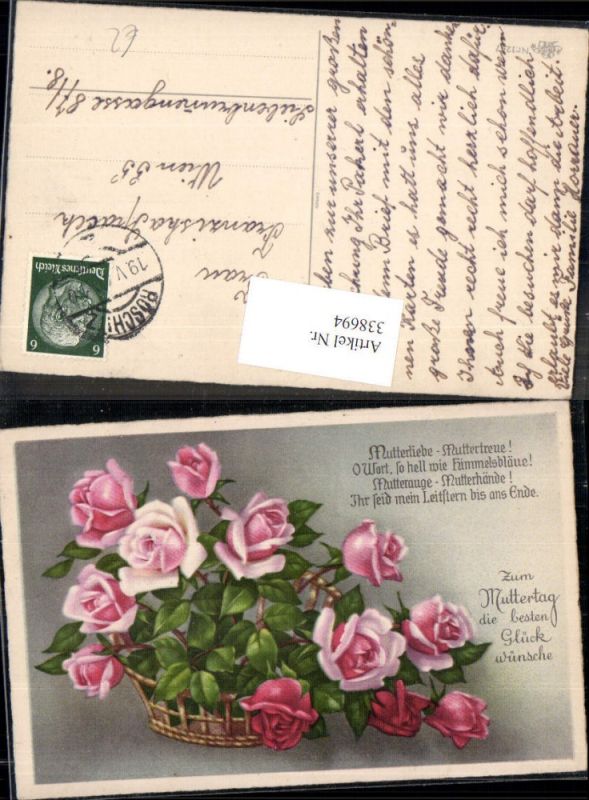 62
Nr. 1227
Frau
Franziska
Wien
87/8.
Deutsches Reich
6 6
19.V.
Artikel Nr.
338694
zur unserer großen
Ihr Paket erhalten
dem Brief mit den schön-
nen Karten es hatt uns alle
große Freude gemacht wir danken
Ihnen recht recht herzlich dafür.
Auch freue ich mich schon wenn
ich die besuchen darf hoffendlich
erlaubt es mir dann die Arbeit
Viele Grüße Familie
Mutterliebe - Muttertreue!
O Wort, so hell wie Himmelsbläue!
Mutterauge - Mutterhände!
Ihr seid mein Leitstern bis ans Ende.
Zum
Muttertag
die besten
Glück
wünsche